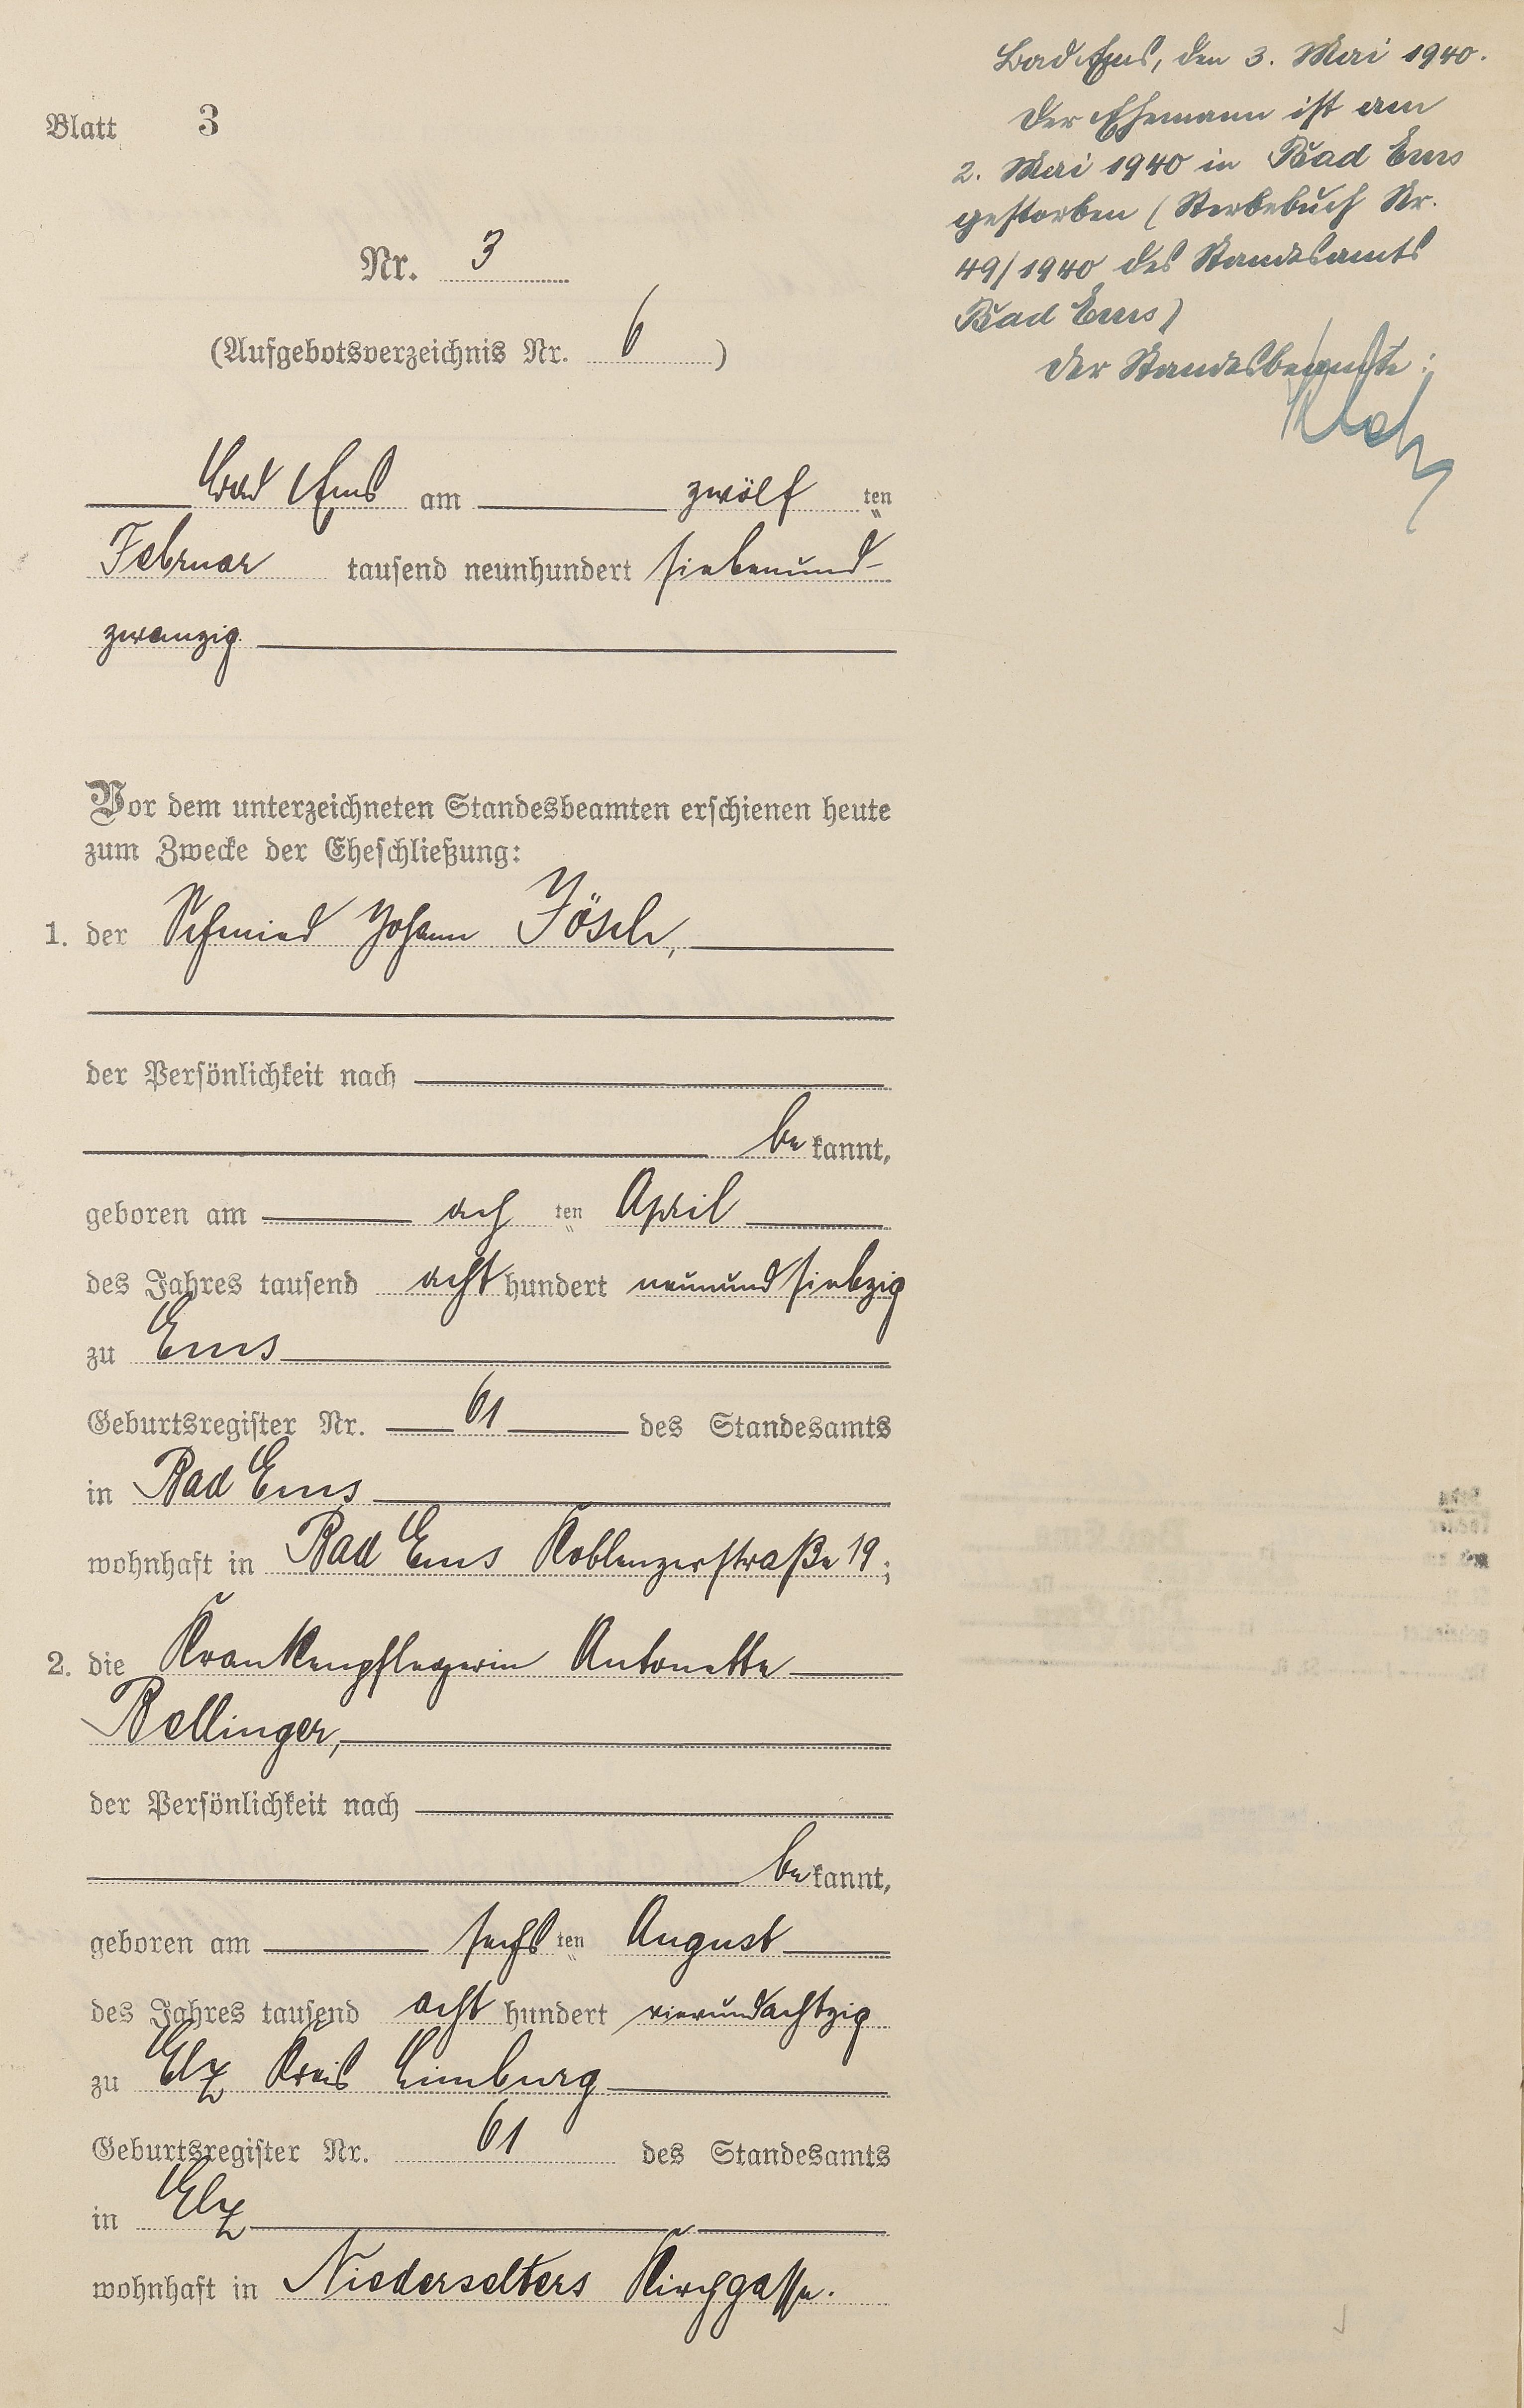 Blatt 3
Nr. 3
(Aufgebotsverzeichnis Nr. 6)
Bad Ems am zwölf ten
Februar tausend neunhundert siebenund-
zwanzig
Vor dem unterzeichneten Standesbeamten erschienen heute
zum Zwecke der Eheschließung:
1. der Schmied Johann Jösch,
der Persönlichkeit nach
be kannt,
geboren am ach ten April
des Jahres tausend acht hundert neunundsiebzig
zu Ems
Geburtsregister Nr. 61 des Standesamts
in Bad Ems
wohnhaft in Bad Ems Koblenzerstraße 19;
2. die Krankenpflegerin Antonette
Bellinger,
der Persönlichkeit nach
be kannt,
geboren am sechs ten August
des Jahres tausend acht hundert vierundachtzig
zu Elz Kreis Limburg
Geburtsregister Nr. 61 des Standesamts
in Elz
wohnhaft in Niederselters Kirchgasse.
Bad Ems, den 3. Mai 1940.
Der Ehemann ist am
2. Mai 1940 in Bad Ems
gestorben (Sterbebuch Nr.
49/1940 des Standesamts
Bad Ems)
Der Standesbeamte: